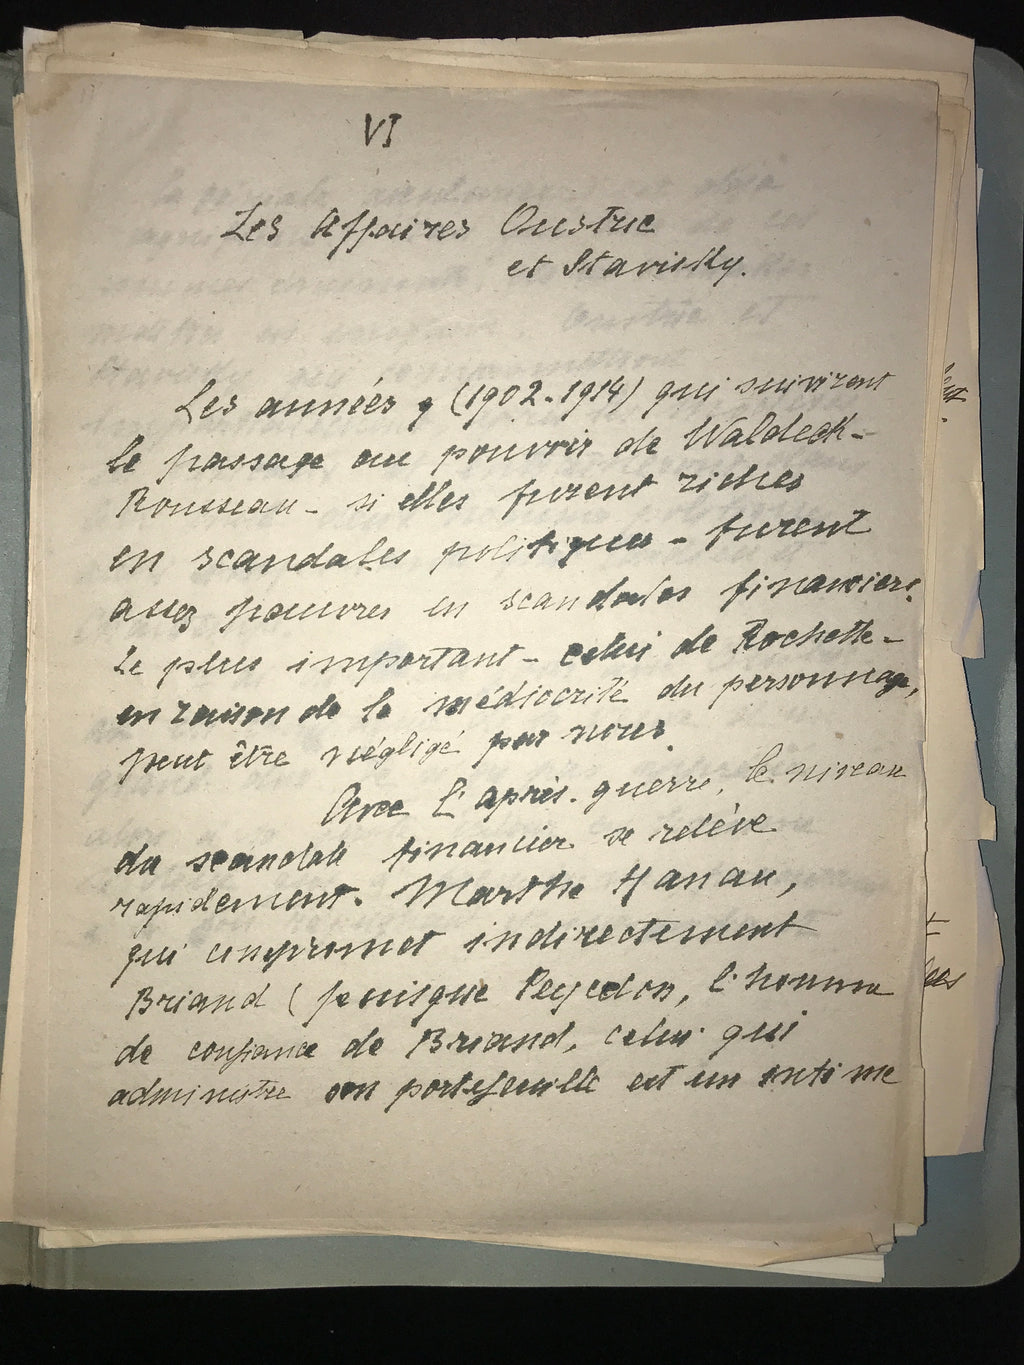 VI
Les Affaires Oustric
et Stavisky.
Les années (1902-1914) qui suivirent
le passage au pouvoir de Waldeck-
Rousseau - si elles furent riches
en scandales politiques - furent
assez pauvres en scandales financiers.
Le plus important - celui de Rochette -
en raison de la médiocrité du personnage,
peut être négligé par nous.
Avec l'après-guerre, le niveau
du scandale financier se relève
rapidement. Marthe Hanau,
qui compromet indirectement
Briand (puisque l'homme
de confiance de Briand, celui qui
administre son portefeuille est un intime